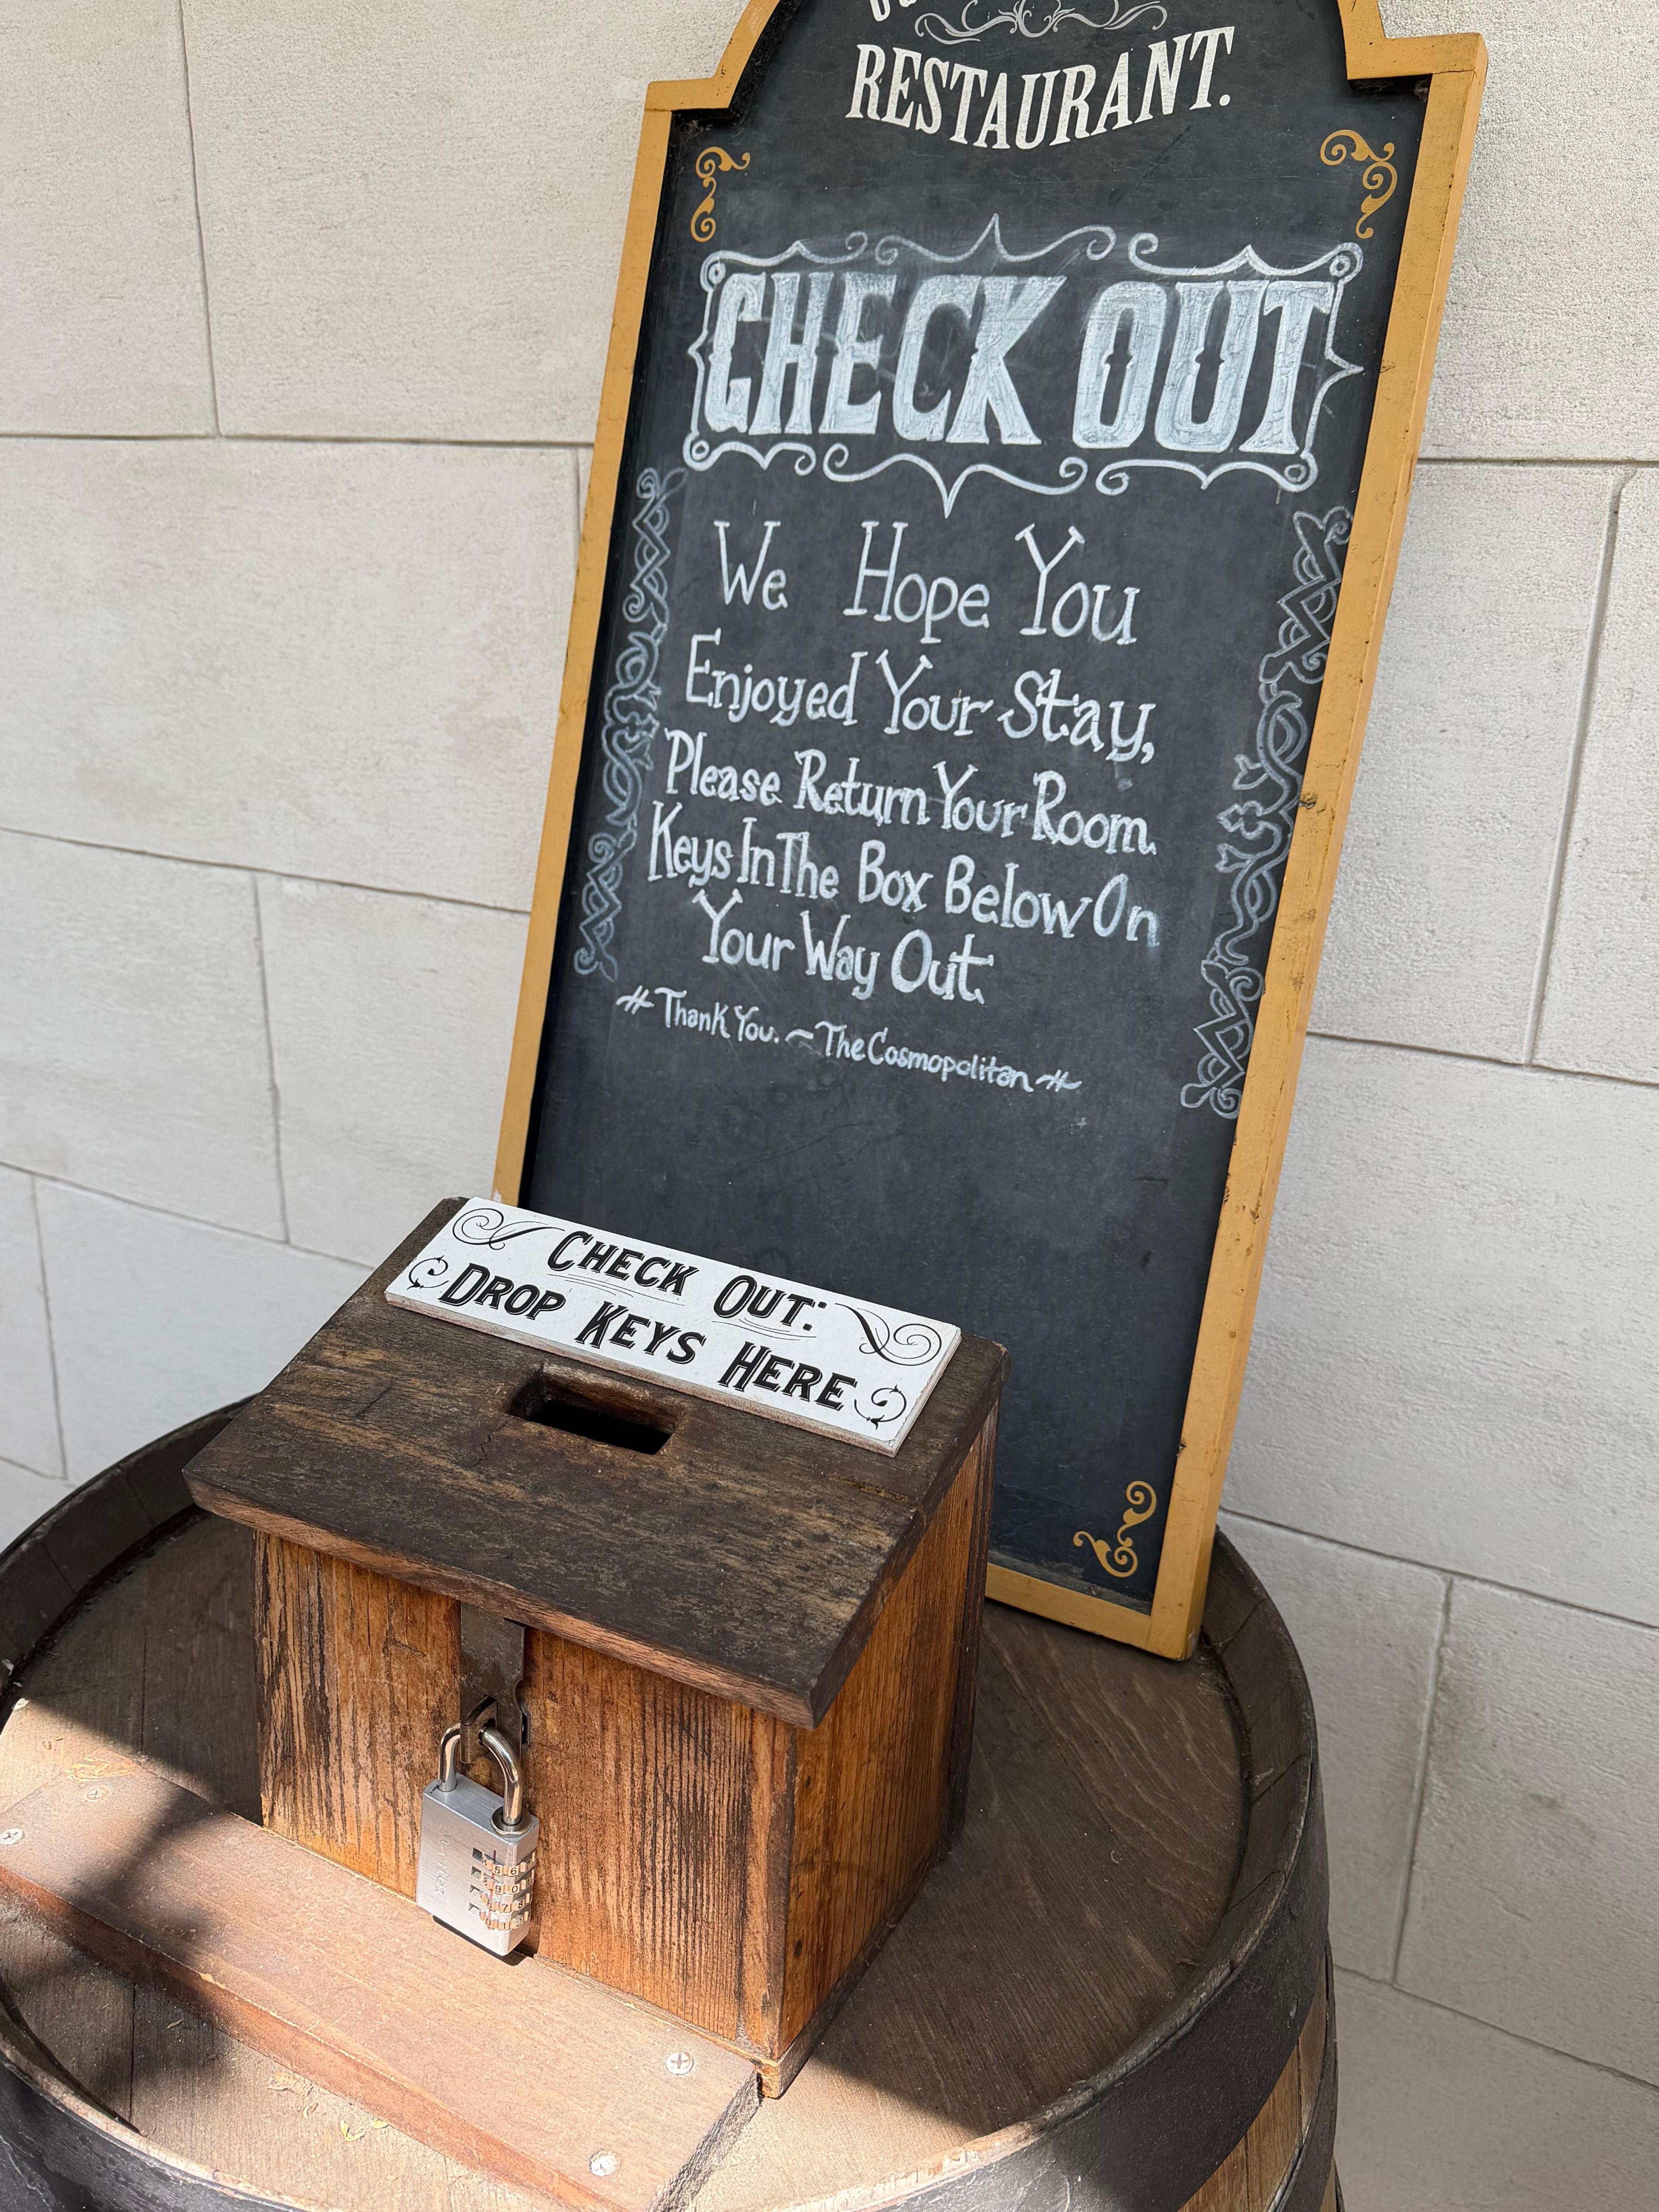 RESTAURANT.
CHECK OUT
We Hope You
Enjoyed Your Stay,
Please Return Your Room
Keys In The Box Below On
Your Way Out.
Thank You. ~ The Cosmopolitan
CHECK OUT:
DROP KEYS HERE